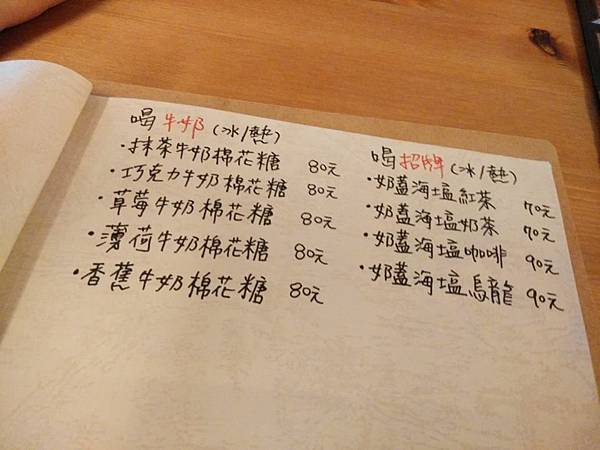 喝牛奶(冰/熱)
・抹茶牛奶棉花糖 80元
・巧克力牛奶棉花糖 80元
・草莓牛奶棉花糖 80元
・薄荷牛奶棉花糖 80元
・香蕉牛奶棉花糖 80元
喝招牌(冰/熱)
・奶蓋海塩紅茶 70元
・奶蓋海塩奶茶 70元
・奶蓋海塩咖啡 90元
・奶蓋海塩烏龍 90元